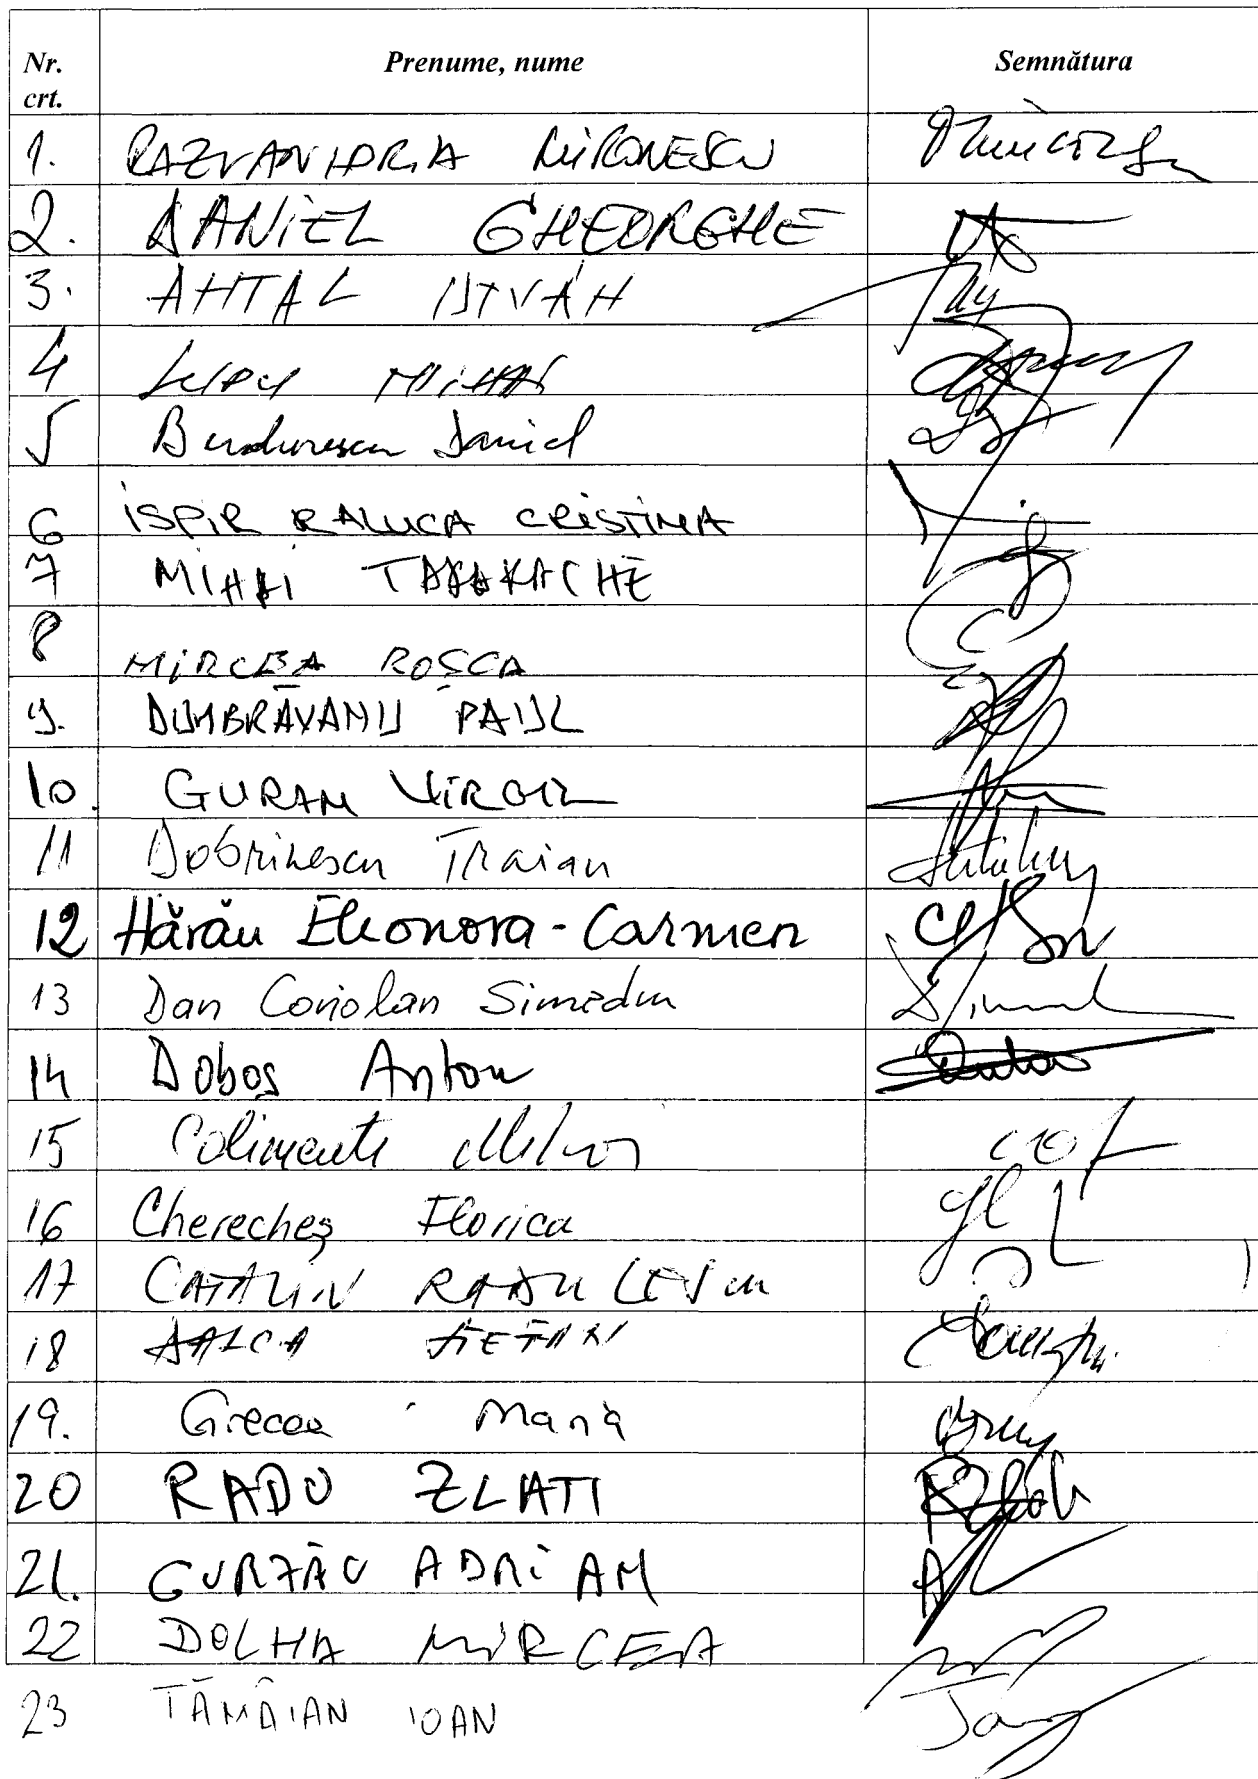 Nr. crt. Prenume, nume Semnătura
1. RAZVAN HORIA MIRONESCU
2. DANIEL GHEORGHE
3. ANTAL ISTVÁN
4 Lupu MIHAI
5 Burdurescu Daniel
6 ISPIR RALUCA CRISTINA
7 MIHAI
8 MIRCEA ROȘCA
9. DUMBRĂVANU PAUL
10. GURAN VIRGIL
11 Dobrinescu Traian
12 Hărău Eleonora-Carmen
13 Dan Coriolan Simedru
14 Doboș Anton
15
16 Cherecheș Florica
17 CATALIN RADULESCU
18 DALCA STEFAN
19. Grecea Maria
20 RADU ZLATI
21. GURZĂU ADRIAN
22 DOLHA MIRCEA
23 TĂMÂIAN IOAN